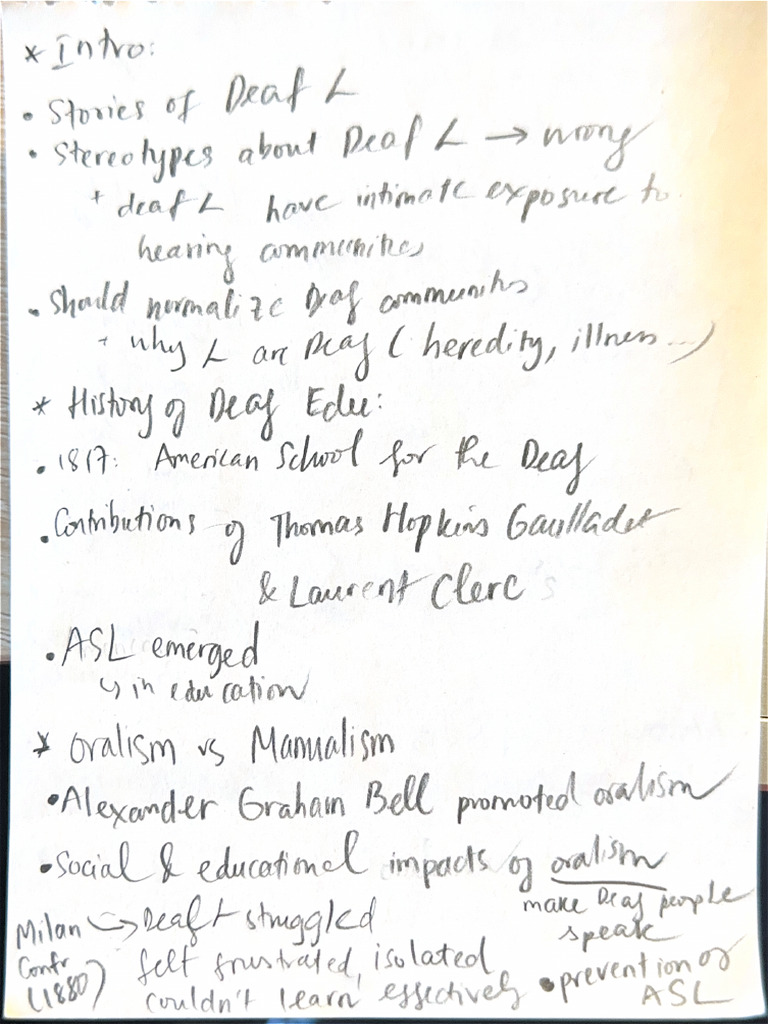 * Intro:
• Stories of Deaf L
• Stereotypes about Deaf L → wrong
+ deaf L have intimate exposure to
hearing communities
• Should normalize Deaf communities
+ why L are Deaf (heredity, illness...)
* History of Deaf Edu:
• 1817: American School for the Deaf
• Contributions of Thomas Hopkins Gaulladet
& Laurent Clerc
• ASL emerged
↳ in education
* Oralism vs Manualism
• Alexander Graham Bell promoted oralism
• Social & educational impacts of oralism
make Deaf people
speak
Milan Confr (1880)
↪ Deaf L struggled
felt frustrated, isolated
couldn't learn effectively
• prevention of
ASL